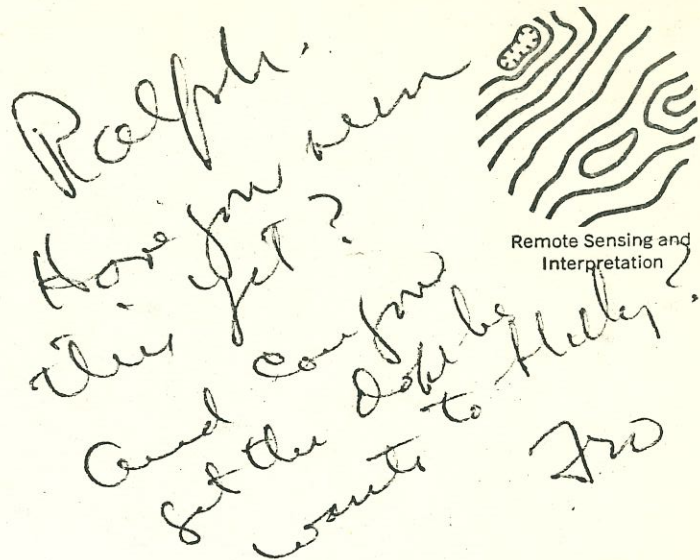 Ralph.
Have you seen
this yet?
And can you
get the Dope he
wants to Holley?
Fro
Remote Sensing and
Interpretation